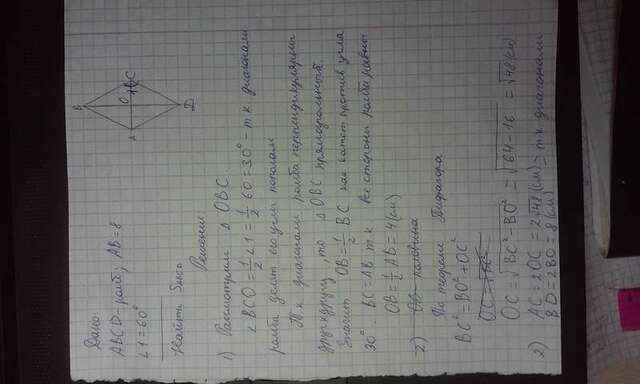 Дано:
ABCD-ромб; AB=8
∠1=60°
Найти
Решение
1) Рассмотрим Δ OBC.
∠BCO=1/2∠1=1/2 60=30°-т к диагонали
ромба делят его углы пополам
Т к диагонали ромба перпендикулярны
друг другу, то Δ OBC прямоугольный.
Значит OB=1/2 BC как катет против угла
30° BC=AB т к все стороны ромба равны
OB=1/2 AB=4(см)
2) OB-половина
По теореме Пифагора
BC²=BO²+OC²
OC=√BC²-BO²=√64-16=√48(см)
2) AC=2OC=2√48(см)-т к диагонали
BD=2BO=8(см)
B
O
C
A
D